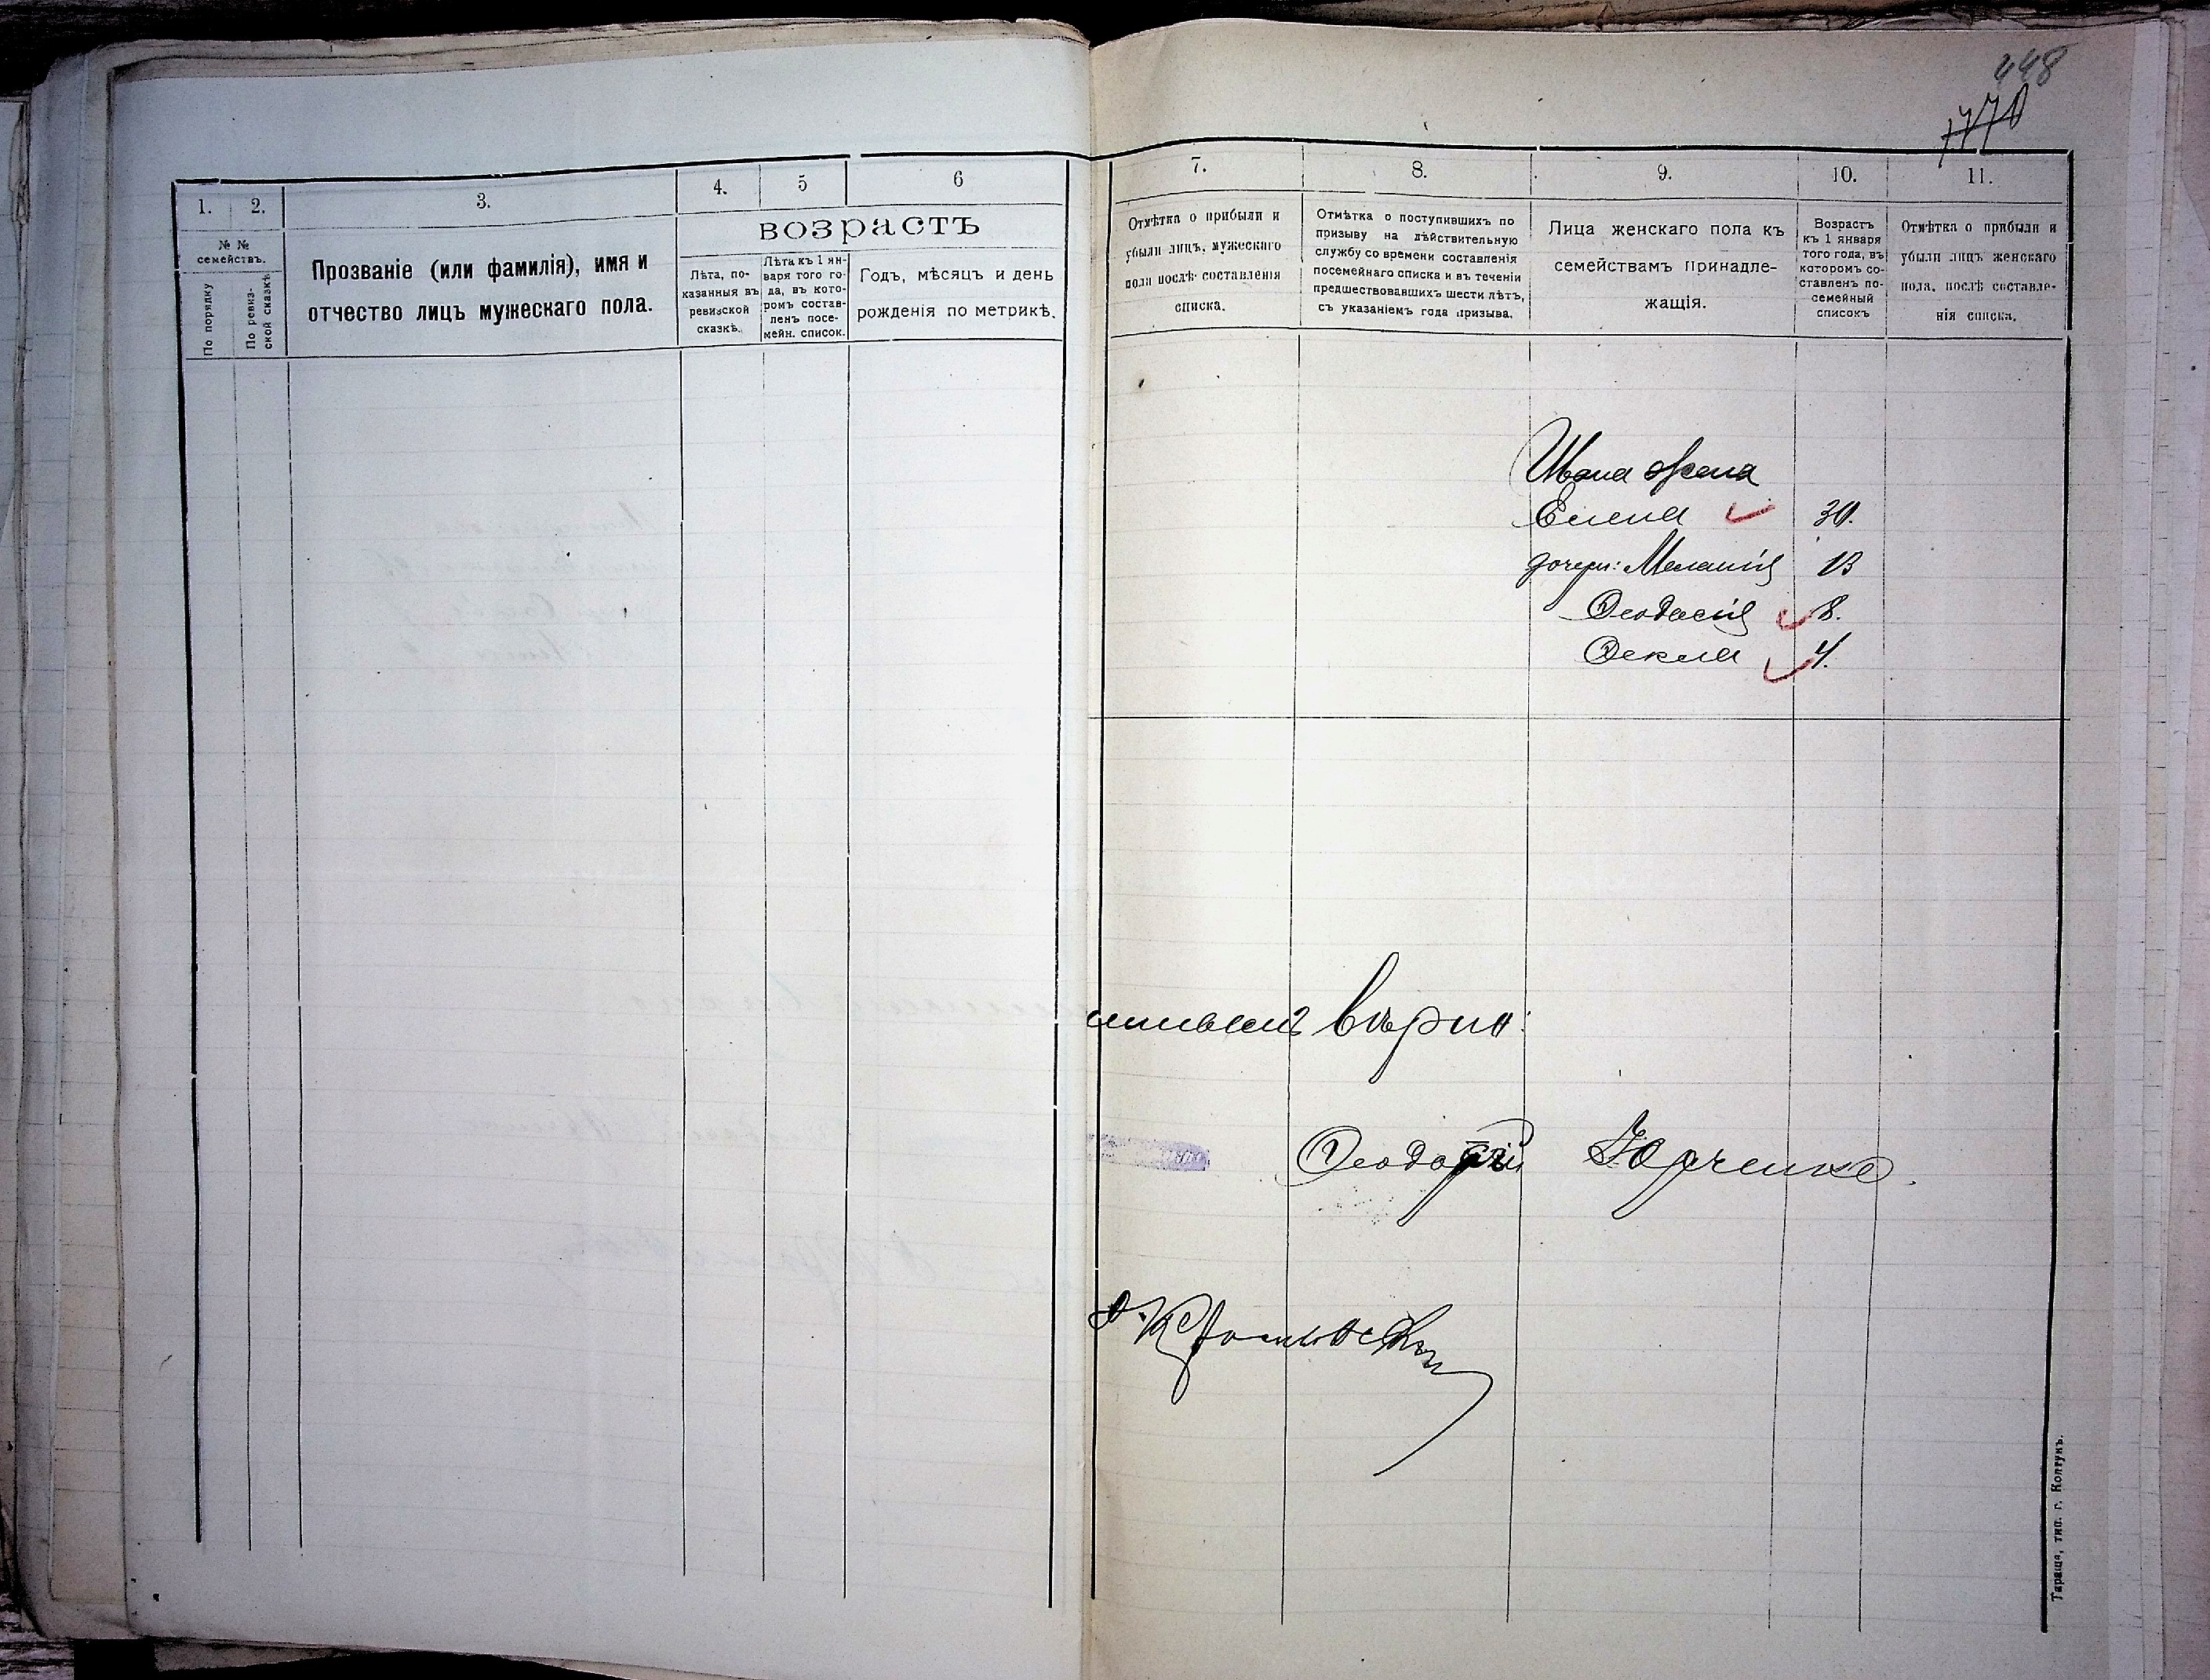 448
1770
1.
2.
3.
4.
5
6
№ №
семействъ.
По порядку
По ревиз-
ской сказкѣ
Прозваніе (или фамилія), имя и
отчество лицъ мужескаго пола.
возрастъ
Лѣта, по-
казанныя въ
ревизской
сказкѣ.
Лѣта къ 1 ян-
варя того го-
да, въ кото-
ромъ состав-
ленъ посе-
мейн. список.
Годъ, мѣсяцъ и день
рожденія по метрикѣ.
7.
8.
9.
10.
11.
Отмѣтка о прибыли и
убыли лицъ, мужескаго
пола послѣ составленія
списка.
Отмѣтка о поступившихъ по
призыву на дѣйствительную
службу со времени составленія
посемейнаго списка и въ теченіи
предшествовавшихъ шести лѣтъ,
съ указаніемъ года призыва.
Лица женскаго пола къ
семействамъ принадле-
жащія.
Возрастъ
къ 1 января
того года, въ
которомъ со-
ставленъ по-
семейный
списокъ
Отмѣтка о прибыли и
убыли лицъ женскаго
пола, послѣ составле-
нія списка.
Ивана жена
Елена 30.
дочери: Меланія 13
Ѳеодосія 8.
Ѳекла 4.
вѣрно:
Ѳеодосій Юрченко.
Тараща, тип. г. Колтунъ.